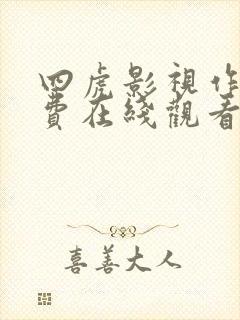 四虎影視作
費在綫觀看
喜善大人